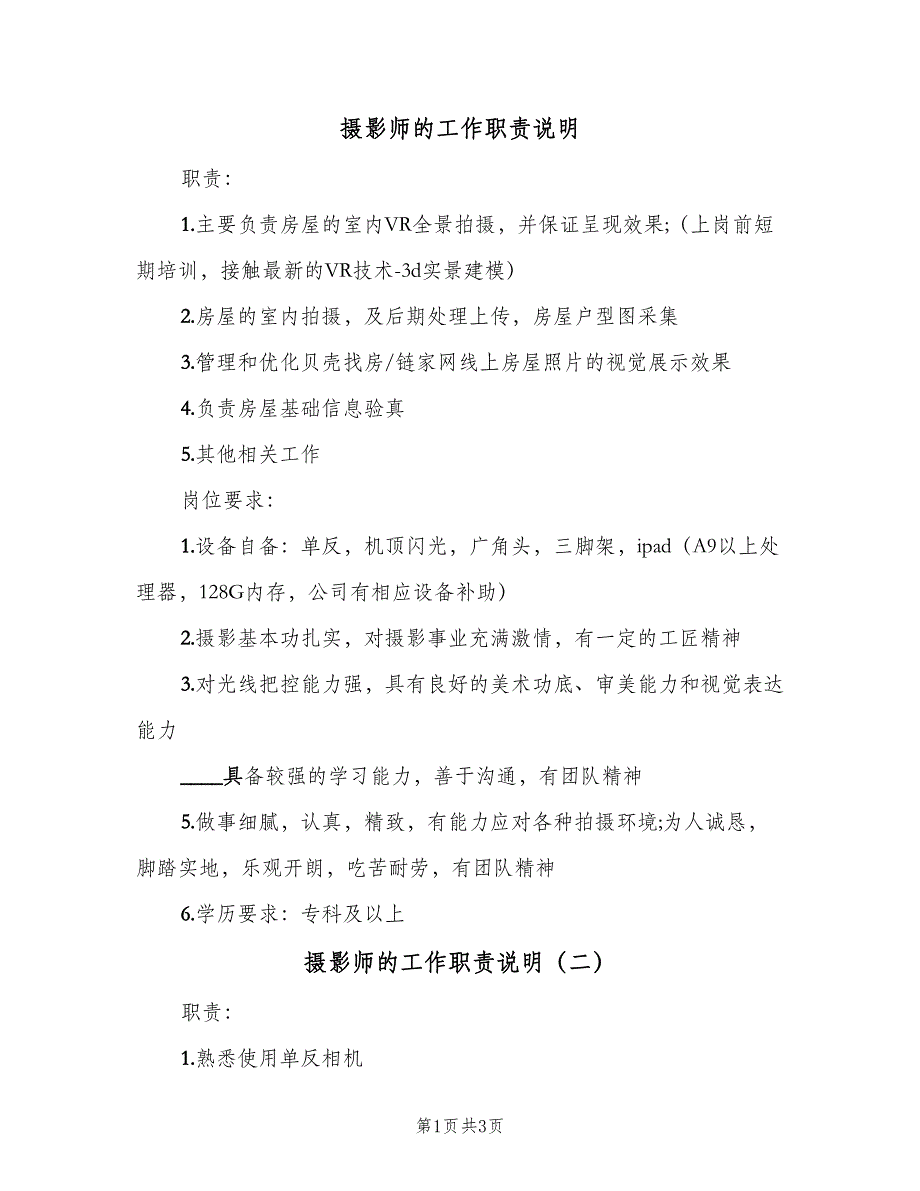 摄影师的工作职责说明
职责：
1.主要负责房屋的室内VR全景拍摄，并保证呈现效果;（上岗前短
期培训，接触最新的VR技术-3d实景建模）
2.房屋的室内拍摄，及后期处理上传，房屋户型图采集
3.管理和优化贝壳找房/链家网线上房屋照片的视觉展示效果
4.负责房屋基础信息验真
5.其他相关工作
岗位要求：
1.设备自备：单反，机顶闪光，广角头，三脚架，ipad（A9以上处
理器，128G内存，公司有相应设备补助）
2.摄影基本功扎实，对摄影事业充满激情，有一定的工匠精神
3.对光线把控能力强，具有良好的美术功底、审美能力和视觉表达
能力
____具备较强的学习能力，善于沟通，有团队精神
5.做事细腻，认真，精致，有能力应对各种拍摄环境;为人诚恳，
脚踏实地，乐观开朗，吃苦耐劳，有团队精神
6.学历要求：专科及以上
摄影师的工作职责说明（二）
职责：
1.熟悉使用单反相机
第1页共3页